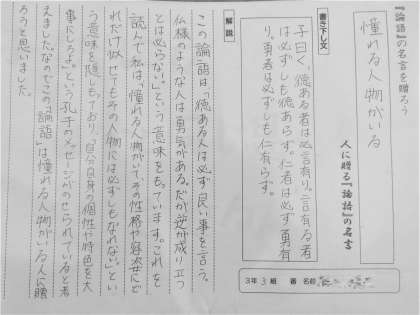 『論語』の名言を贈ろう
憧れる人物がいる
人に贈る『論語』の名言
3年 3組 番 名前
書き下し文
子曰く、徳ある者は必ず言有り。言有る者
は必ずしも徳あらず。仁者は必ず勇有
り。勇者は必ずしも仁有らず。
解説
この論語は「徳ある人は必ず良い事を言う。
仏様のような人は勇気がある。だが逆が成り立つ
とは必らない。」という意味をもっています。これを
読んで私は、「憧れる人物がいて、その性格や容姿にど
れだけ似せてもその人物には必ずしもなれない。」とい
う意味を隠しもっており、「自分自身の個性や特色を大
事にしろよ。」という孔子のメッセージがのせられていると考
えました。なのでこの「論語」は憧れる人物がいる人に贈
ろうと思いました。